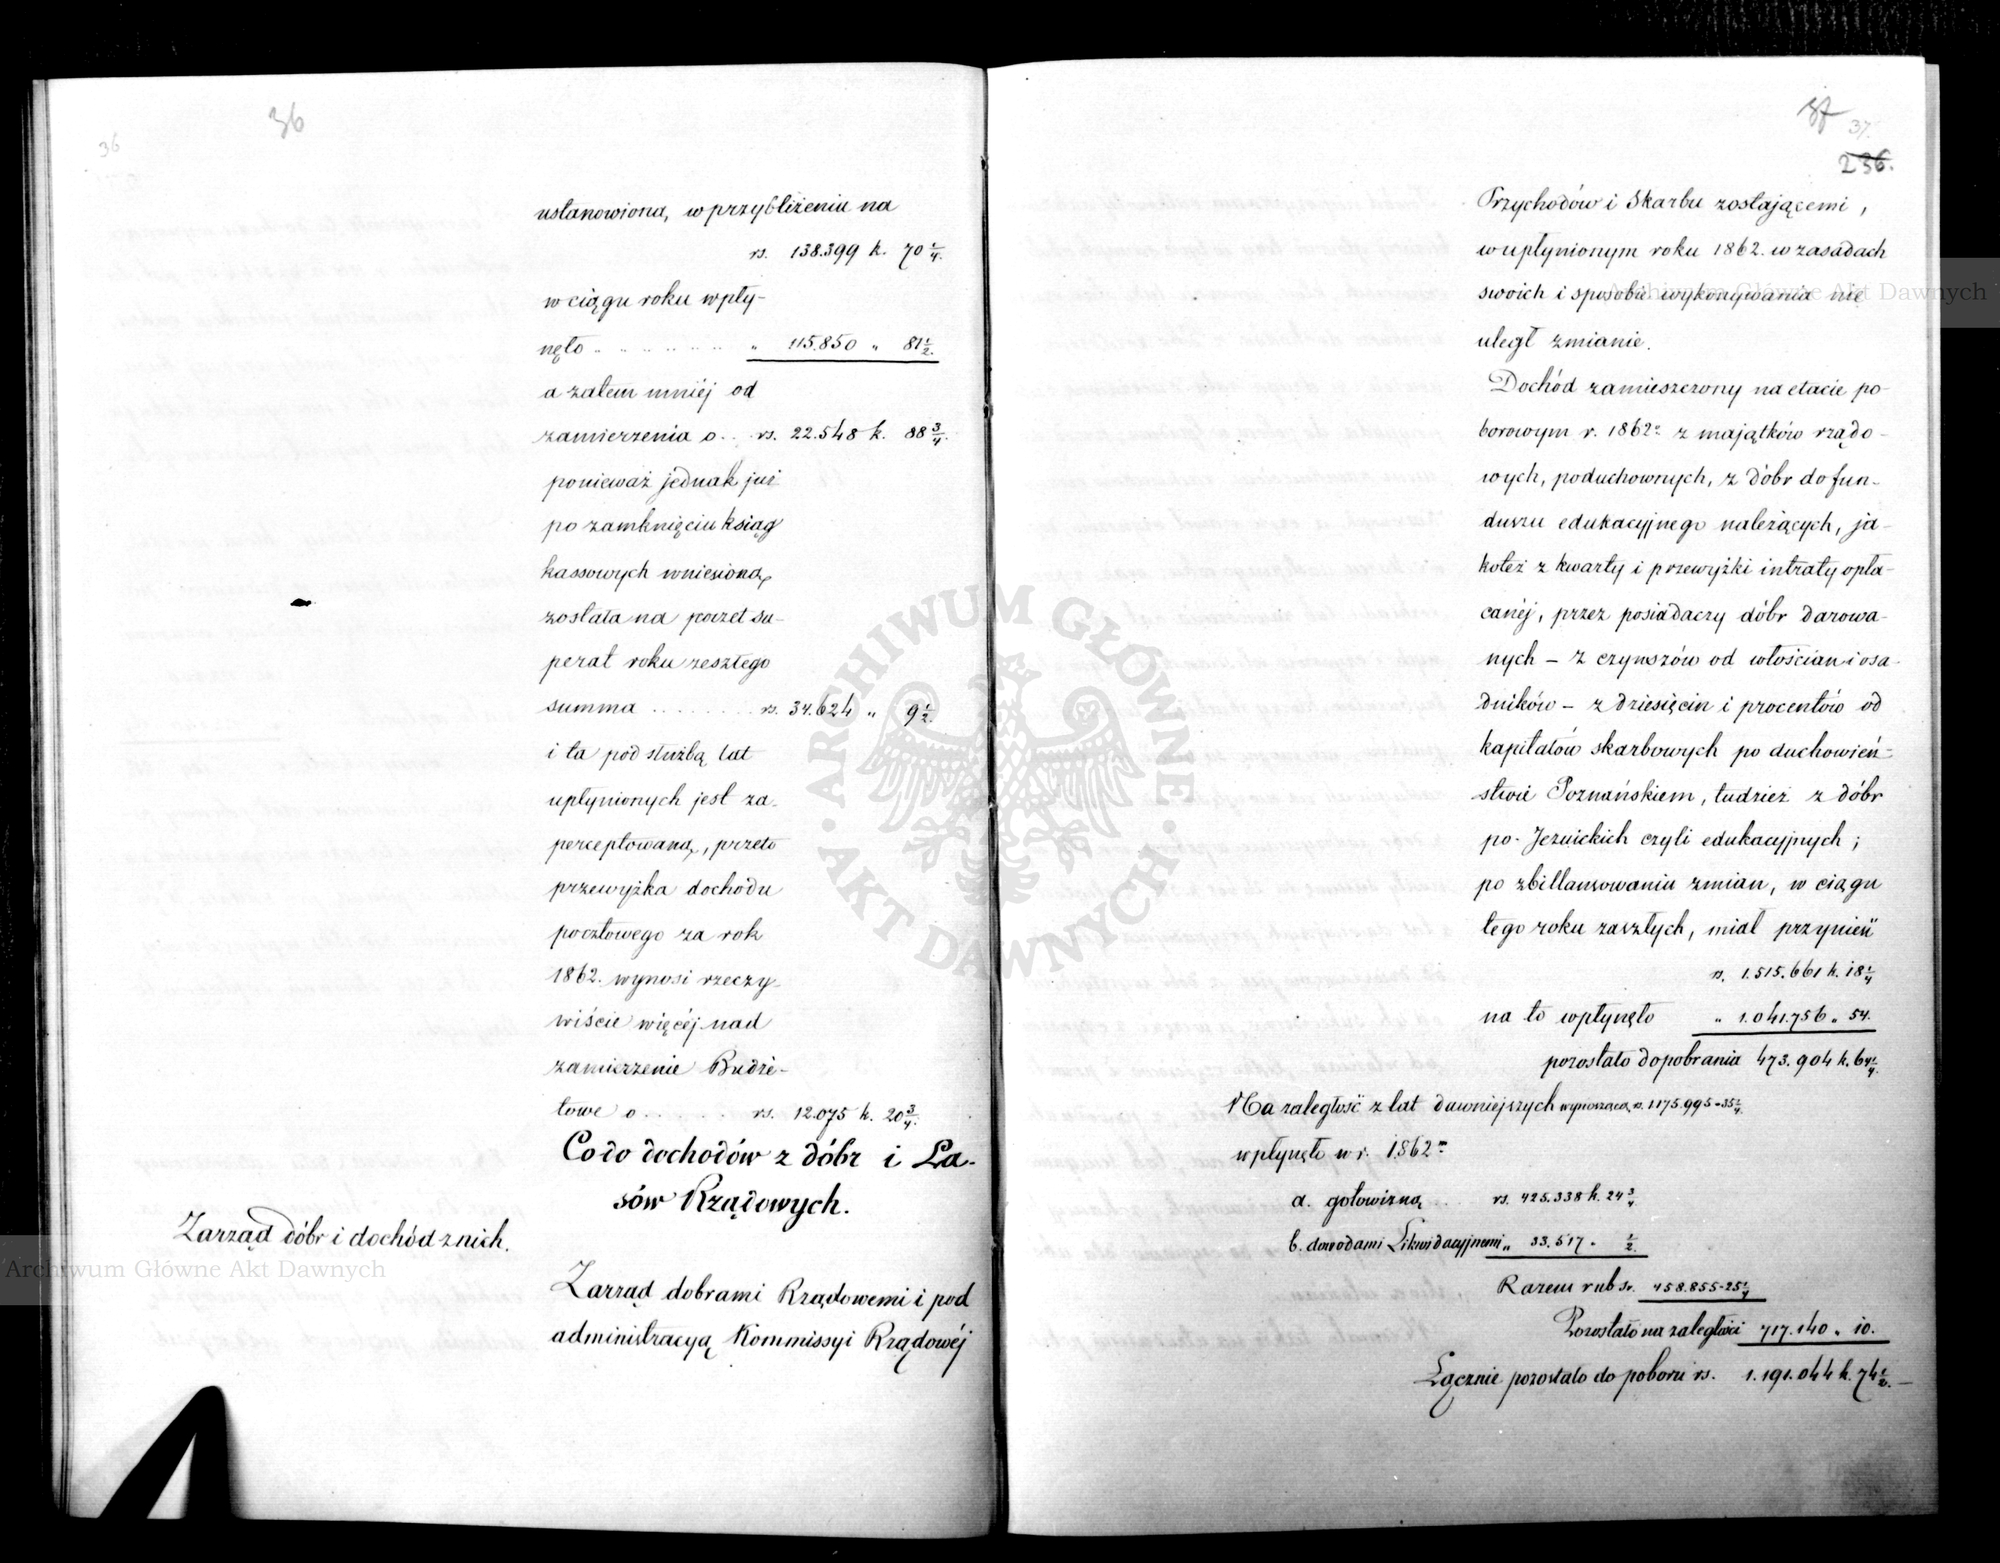 36
36
ustanowiona, w przybliżeniu na
rs. 138.399 k. 70 1/4.
w ciągu roku wpły-
nęło .. .. .. .. .. .. „ 115.850 „ 81 1/2.
a zatem mniéj od
zamierzenia o .. rs. 22.548 k. 88 3/4.
ponieważ jednak już
po zamknięciu ksiąg
kassowych wniesioną
została na poczet su-
perat roku zeszłego
summa ........ rs. 34.624 „ 9 1/2.
i ta pod służbą lat
upłynionych jest za-
perceptowaną, przeto
przewyżka dochodu
pocztowego za rok
1862. wynosi rzeczy-
wiście więcéj nad
zamierzenie Budże-
towe o ...... rs. 12.075 k. 20 3/4.
Co do dochodów z dóbr i La-
sów Rządowych.
Zarząd dóbr i dochód z nich.
Zarząd dobrami Rządowemi i pod
administracyą Kommissyi Rządowéj
37
37.
236.
Przychodów i Skarbu zostającemi,
w upłynionym roku 1862. w zasadach
swoich i sposobie wykonywania nie
uległ zmianie.
Dochód zamieszczony na etacie po-
borowym r. 1862o z majątków rządo-
wych, poduchownych, z dóbr do fun-
duszu edukacyjnego należących, ja-
koteż z kwarty i przewyżki intraty opła-
canéj, przez posiadaczy dóbr darowa-
nych – z czynszów od włościan i osa-
dników – z dziesięcin i procentów od
kapitałów skarbowych po duchowień-
stwie Poznańskiem, tudzież z dóbr
po-Jezuickich czyli edukacyjnych;
po zbillansowaniu zmian, w ciągu
tego roku zaszłych, miał przynieść
rs. 1.515.661 k. 18 1/4
na to wpłynęło „ 1.041.756 „ 54.
pozostało do pobrania 473.904 k. 64 1/4.
Na zaległość z lat dawniejszych wynoszącą rs. 1175.995 - 35 1/4.
wpłynęło w r. 1862m
a. gotowizną .. rs. 425.338 k. 24 3/4
b. dowodami Likwidacyjnemi „ 33.517 „ 1/2.
Razem rub sr. 458.855 - 25 1/4
Pozostało na zaległości 717.140 „ 10.
Łącznie pozostało do poboru rs. 1.191.044 k. 74 1/2. –
ARCHIWUM GŁÓWNE
AKT DAWNYCH
Archiwum Główne Akt Dawnych
Archiwum Główne Akt Dawnych